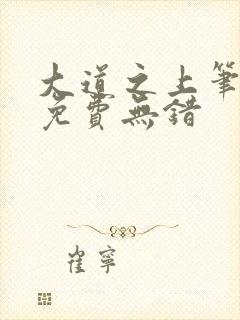 大道之上筆
免費無錯
崔寧